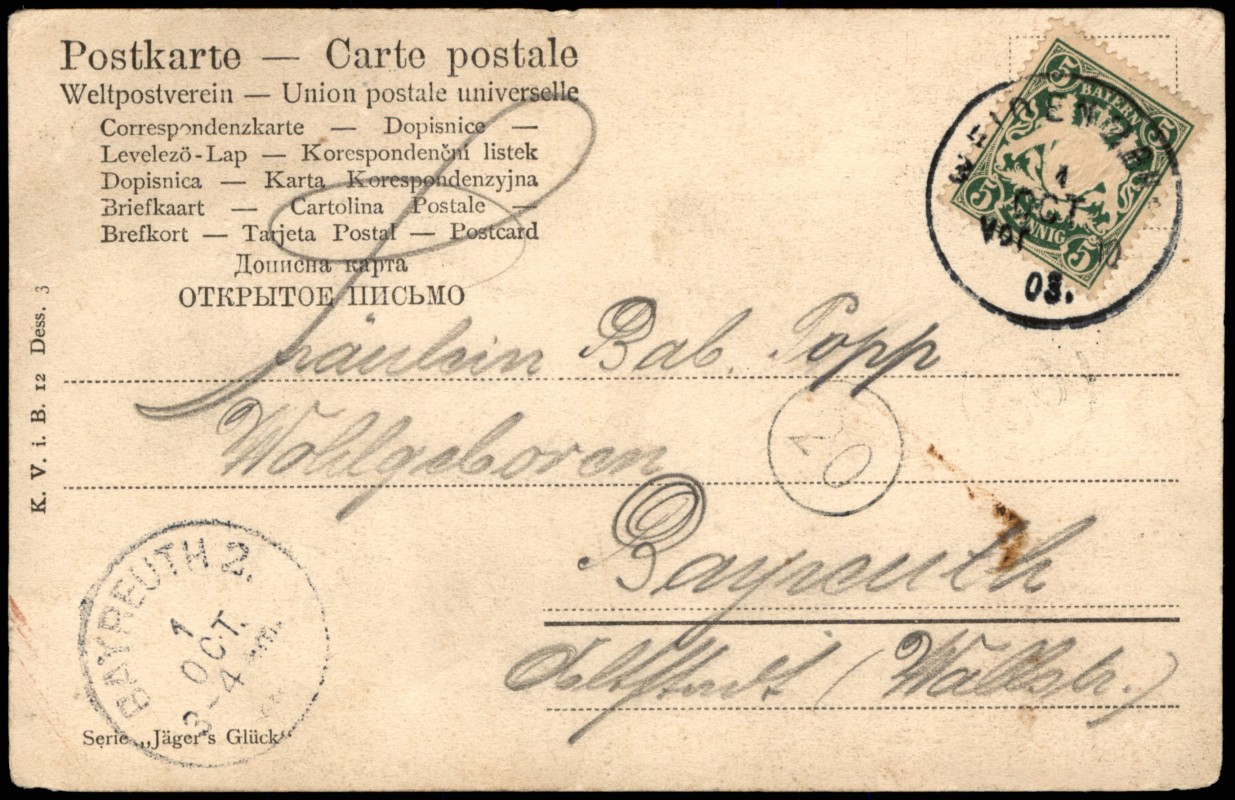 Postkarte — Carte postale
Weltpostverein — Union postale universelle
Correspondenzkarte — Dopisnice —
Levelező-Lap — Korespondenční listek
Dopisnica — Karta Korespondenzyjna
Briefkaart — Cartolina Postale —
Brefkort — Tarjeta Postal — Postcard
Дописна карта
ОТКРЫТОЕ ПИСЬМО
5 5
BAYERN
5 5
PFENNIG
1
OCT.
Vor
03.
K. V. i. B. 12 Dess. 3
Fräulein Bab. Popp
Wohlgeboren
Bayreuth
Altstadt (Wallstr.)
BAYREUTH 2.
1
OCT.
3-4
Serie „Jäger's Glück“